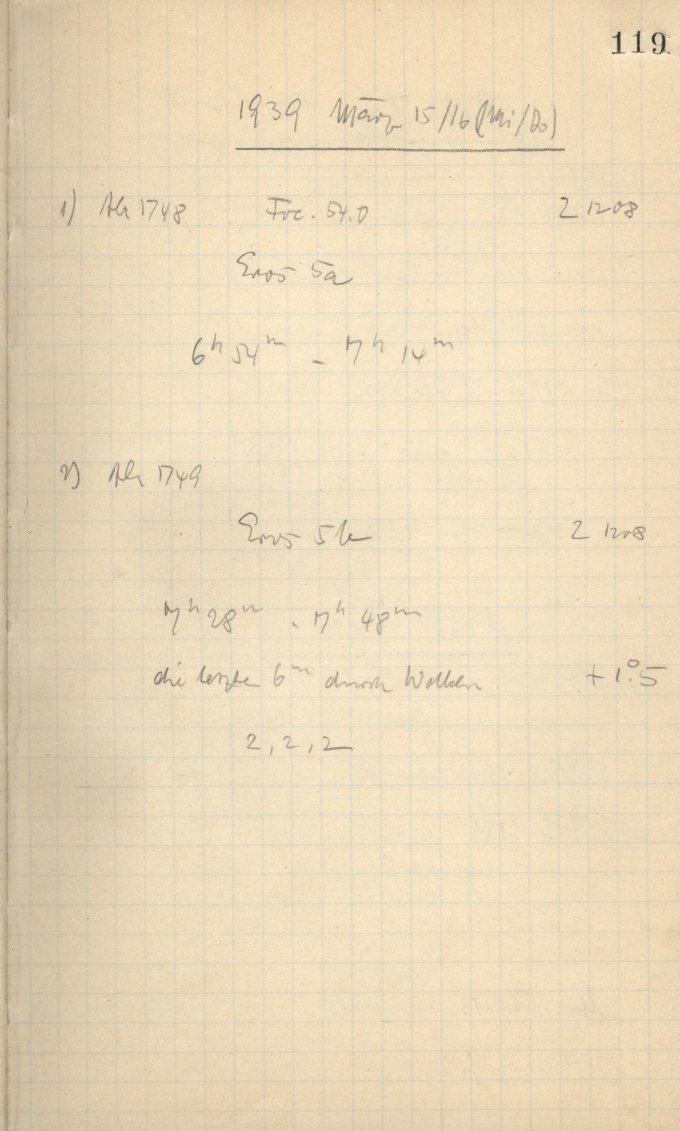 119
1939 März 15/16 (Mi/Do)
1) AG 1748 Foc. 54.0 Z 1208
Eros 5a
6h 54m - 7h 14m
2) AG 1749
Eros 5b Z 1208
7h 28m - 7h 48m
die letzten 6m durch Wolken +1°.5
2, 2, 2